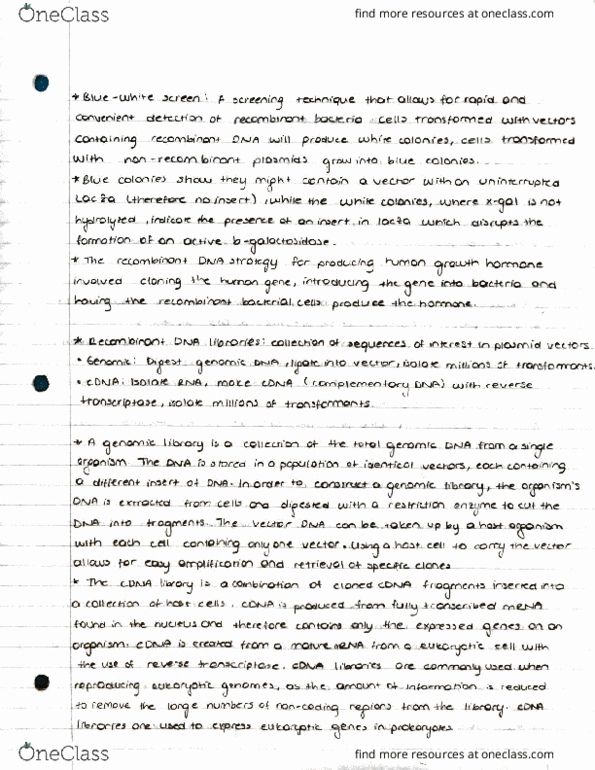 OneClass
find more resources at oneclass.com
* Blue-white screen: A screening technique that allows for rapid and
convenient detection of recombinant bacteria. Cells transformed with vectors
containing recombinant DNA will produce white colonies, cells transformed
with non-recombinant plasmids grow into blue colonies.
* Blue colonies show they might contain a vector with an uninterrupted
Lac za (therefore no insert), while the white colonies, where x-gal is not
hydrolyted, indicate the presence of an insert in lacza which disrupts the
formation of an active b-galactosidase.
* The recombinant DNA strategy for producing human growth hormone
involved cloning the human gene, introducing the gene into bacteria and
having the recombinant bacterial cells produce the hormone.
* Recombinant DNA libraries: collection of sequences of interest in plasmid vectors.
• Genomic: Digest genomic DNA, ligate into vector, isolate millions of transformants.
• cDNA: Isolate RNA, make cDNA (complementary DNA) with reverse
transcriptase, isolate millions of transformants.
* A genomic library is a collection of the total genomic DNA from a single
organism. The DNA is stored in a population of identical vectors, each containing
a different insert of DNA. In order to construct a genomic library, the organism's
DNA is extracted from cells and digested with a restriction enzyme to cut the
DNA into fragments. The vector DNA can be taken up by a host organism
with each cell containing only one vector. Using a host cell to carry the vector
allows for easy amplification and retrieval of specific clones
* The cDNA library is a combination of cloned cDNA fragments inserted into
a collection of host cells. cDNA is produced from fully transcribed mRNA
found in the nucleus and therefore contains only the expressed genes on an
organism. cDNA is created from a mature mRNA from a eukaryotic cell with
the use of reverse transcriptase. cDNA libraries are commonly used when
reproducing eukaryotic genomes, as the amount of information is reduced
to remove the large numbers of non-coding regions from the library. cDNA
libraries are used to express eukaryotic genes in prokaryotes
OneClass
find more resources at oneclass.com